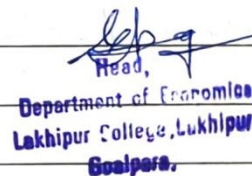 Head,
Department of Economics
Lakhipur College, Lakhipur
Goalpara.